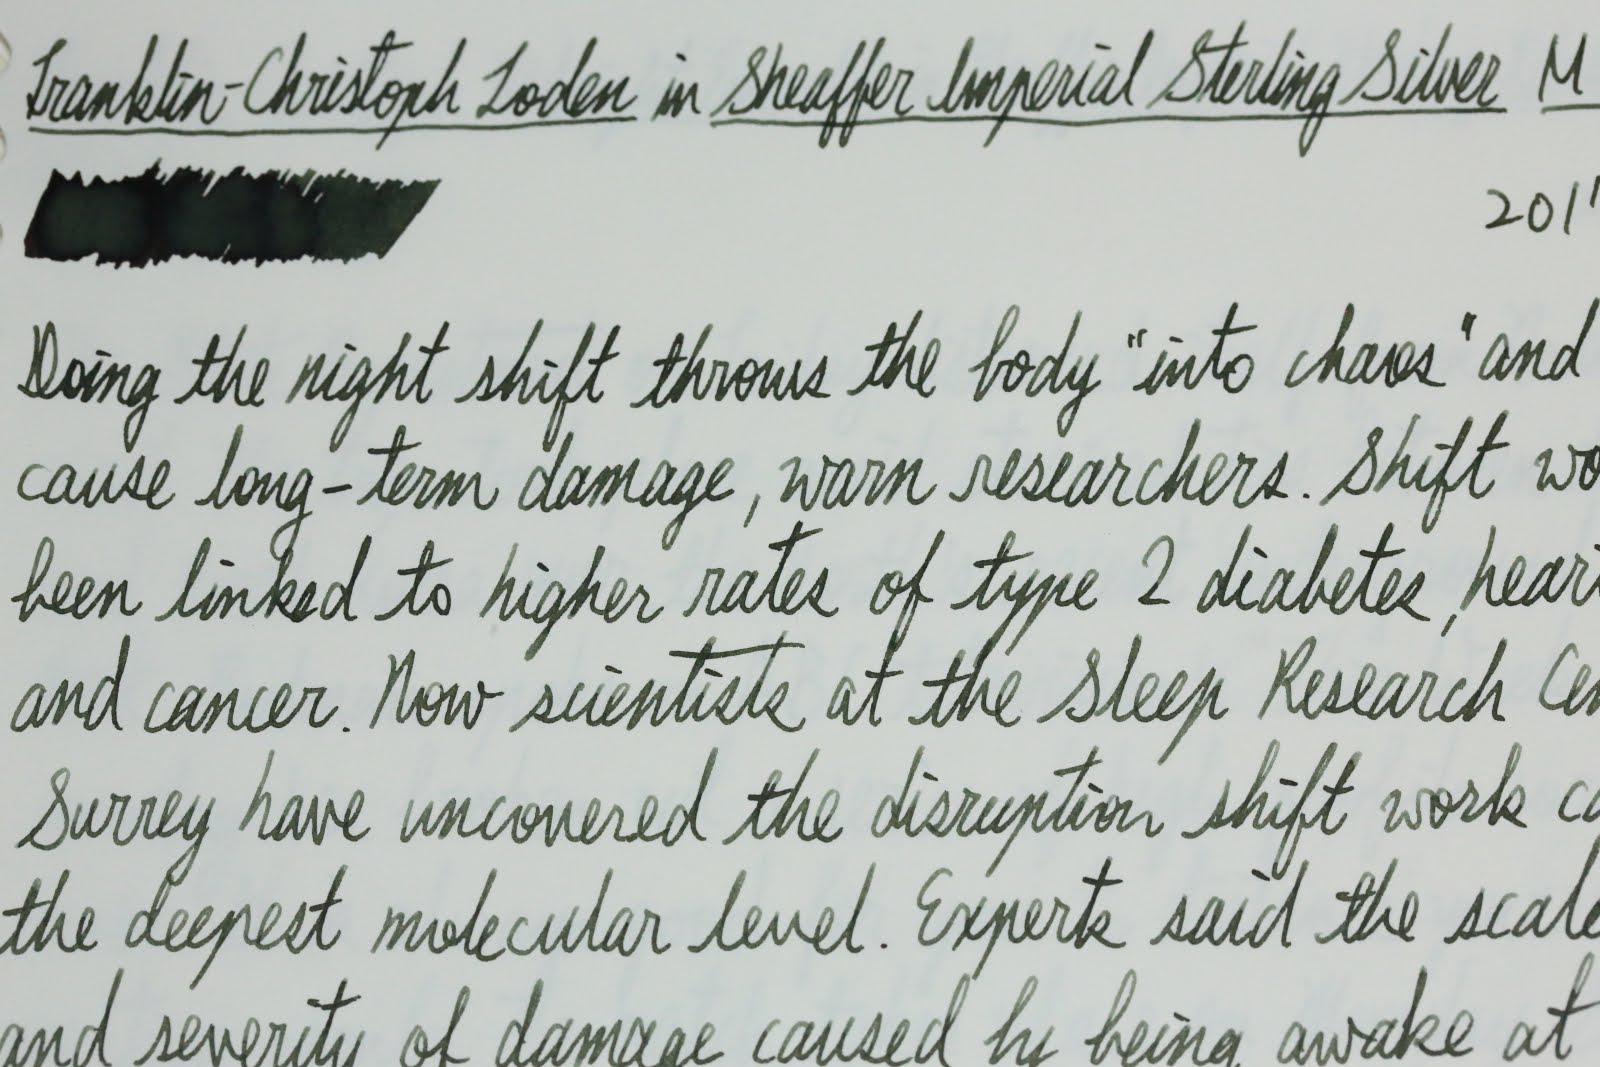 Franklin-Christoph Loden in Sheaffer Imperial Sterling Silver M
201
Doing the night shift throws the body "into chaos" and
cause long-term damage, warn researchers. Shift wo
been linked to higher rates of type 2 diabetes, hear
and cancer. Now scientists at the Sleep Research Cen
Surrey have uncovered the disruption shift work ca
the deepest molecular level. Experts said the scale
and severity of damage caused by being awake at